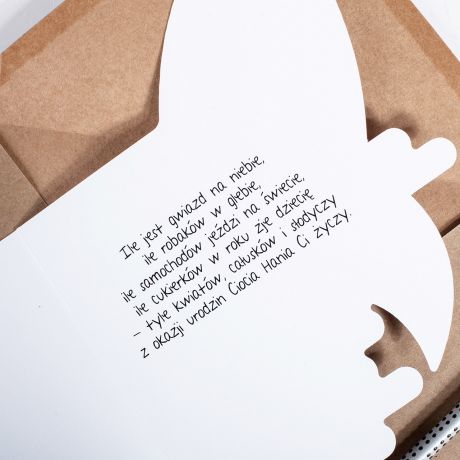 Ile jest gwiazd na niebie,
ile robaków w glebie,
ile samochodów jeździ na świecie,
ile cukierków w roku zje dziecię
- tyle kwiatów, całusków i słodyczy
z okazji urodzin Ciocia Hania Ci życzy.